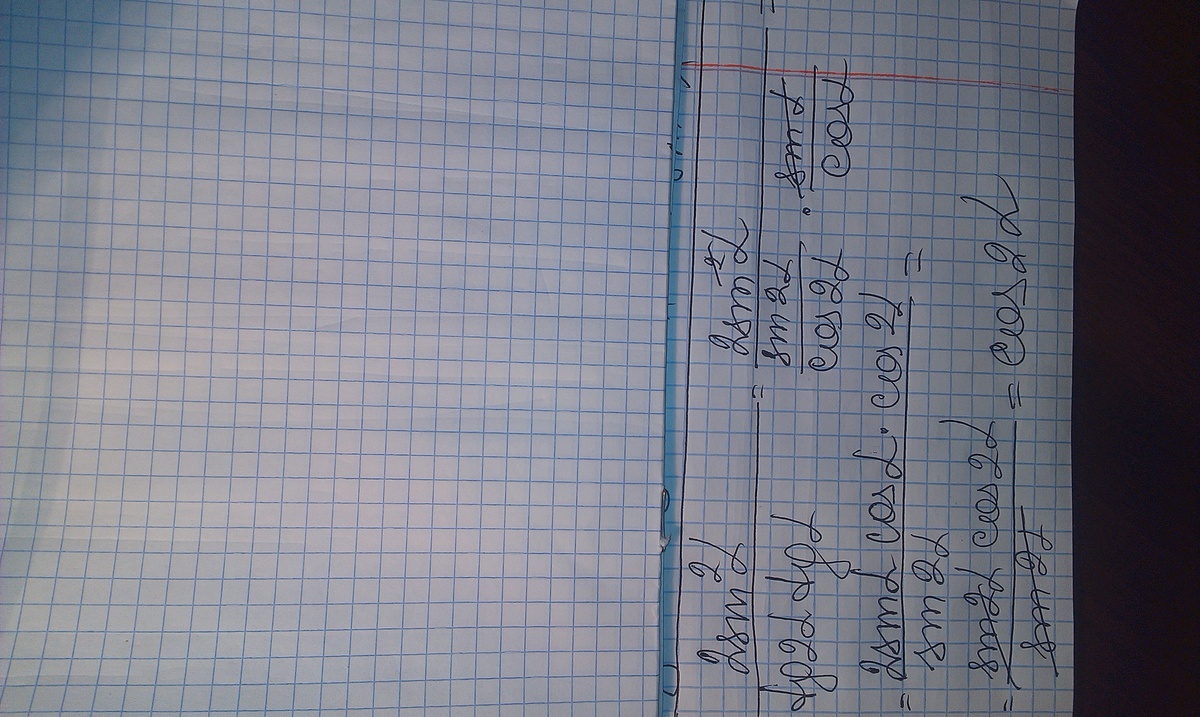 2sin²α / tg2α tgα = 2sin²α / (sin2α / cos2α · sinα / cosα) =
= 2sinα cosα · cos2α / sin2α =
= sin2α cos2α / sin2α = cos2α